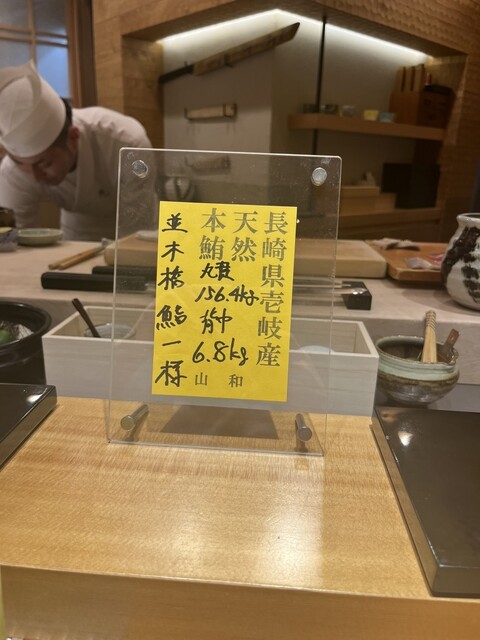 長崎県壱岐産
天然
本鮪
丸
156.4kg
背中
6.8kg
山和
並木橋
鮨一様